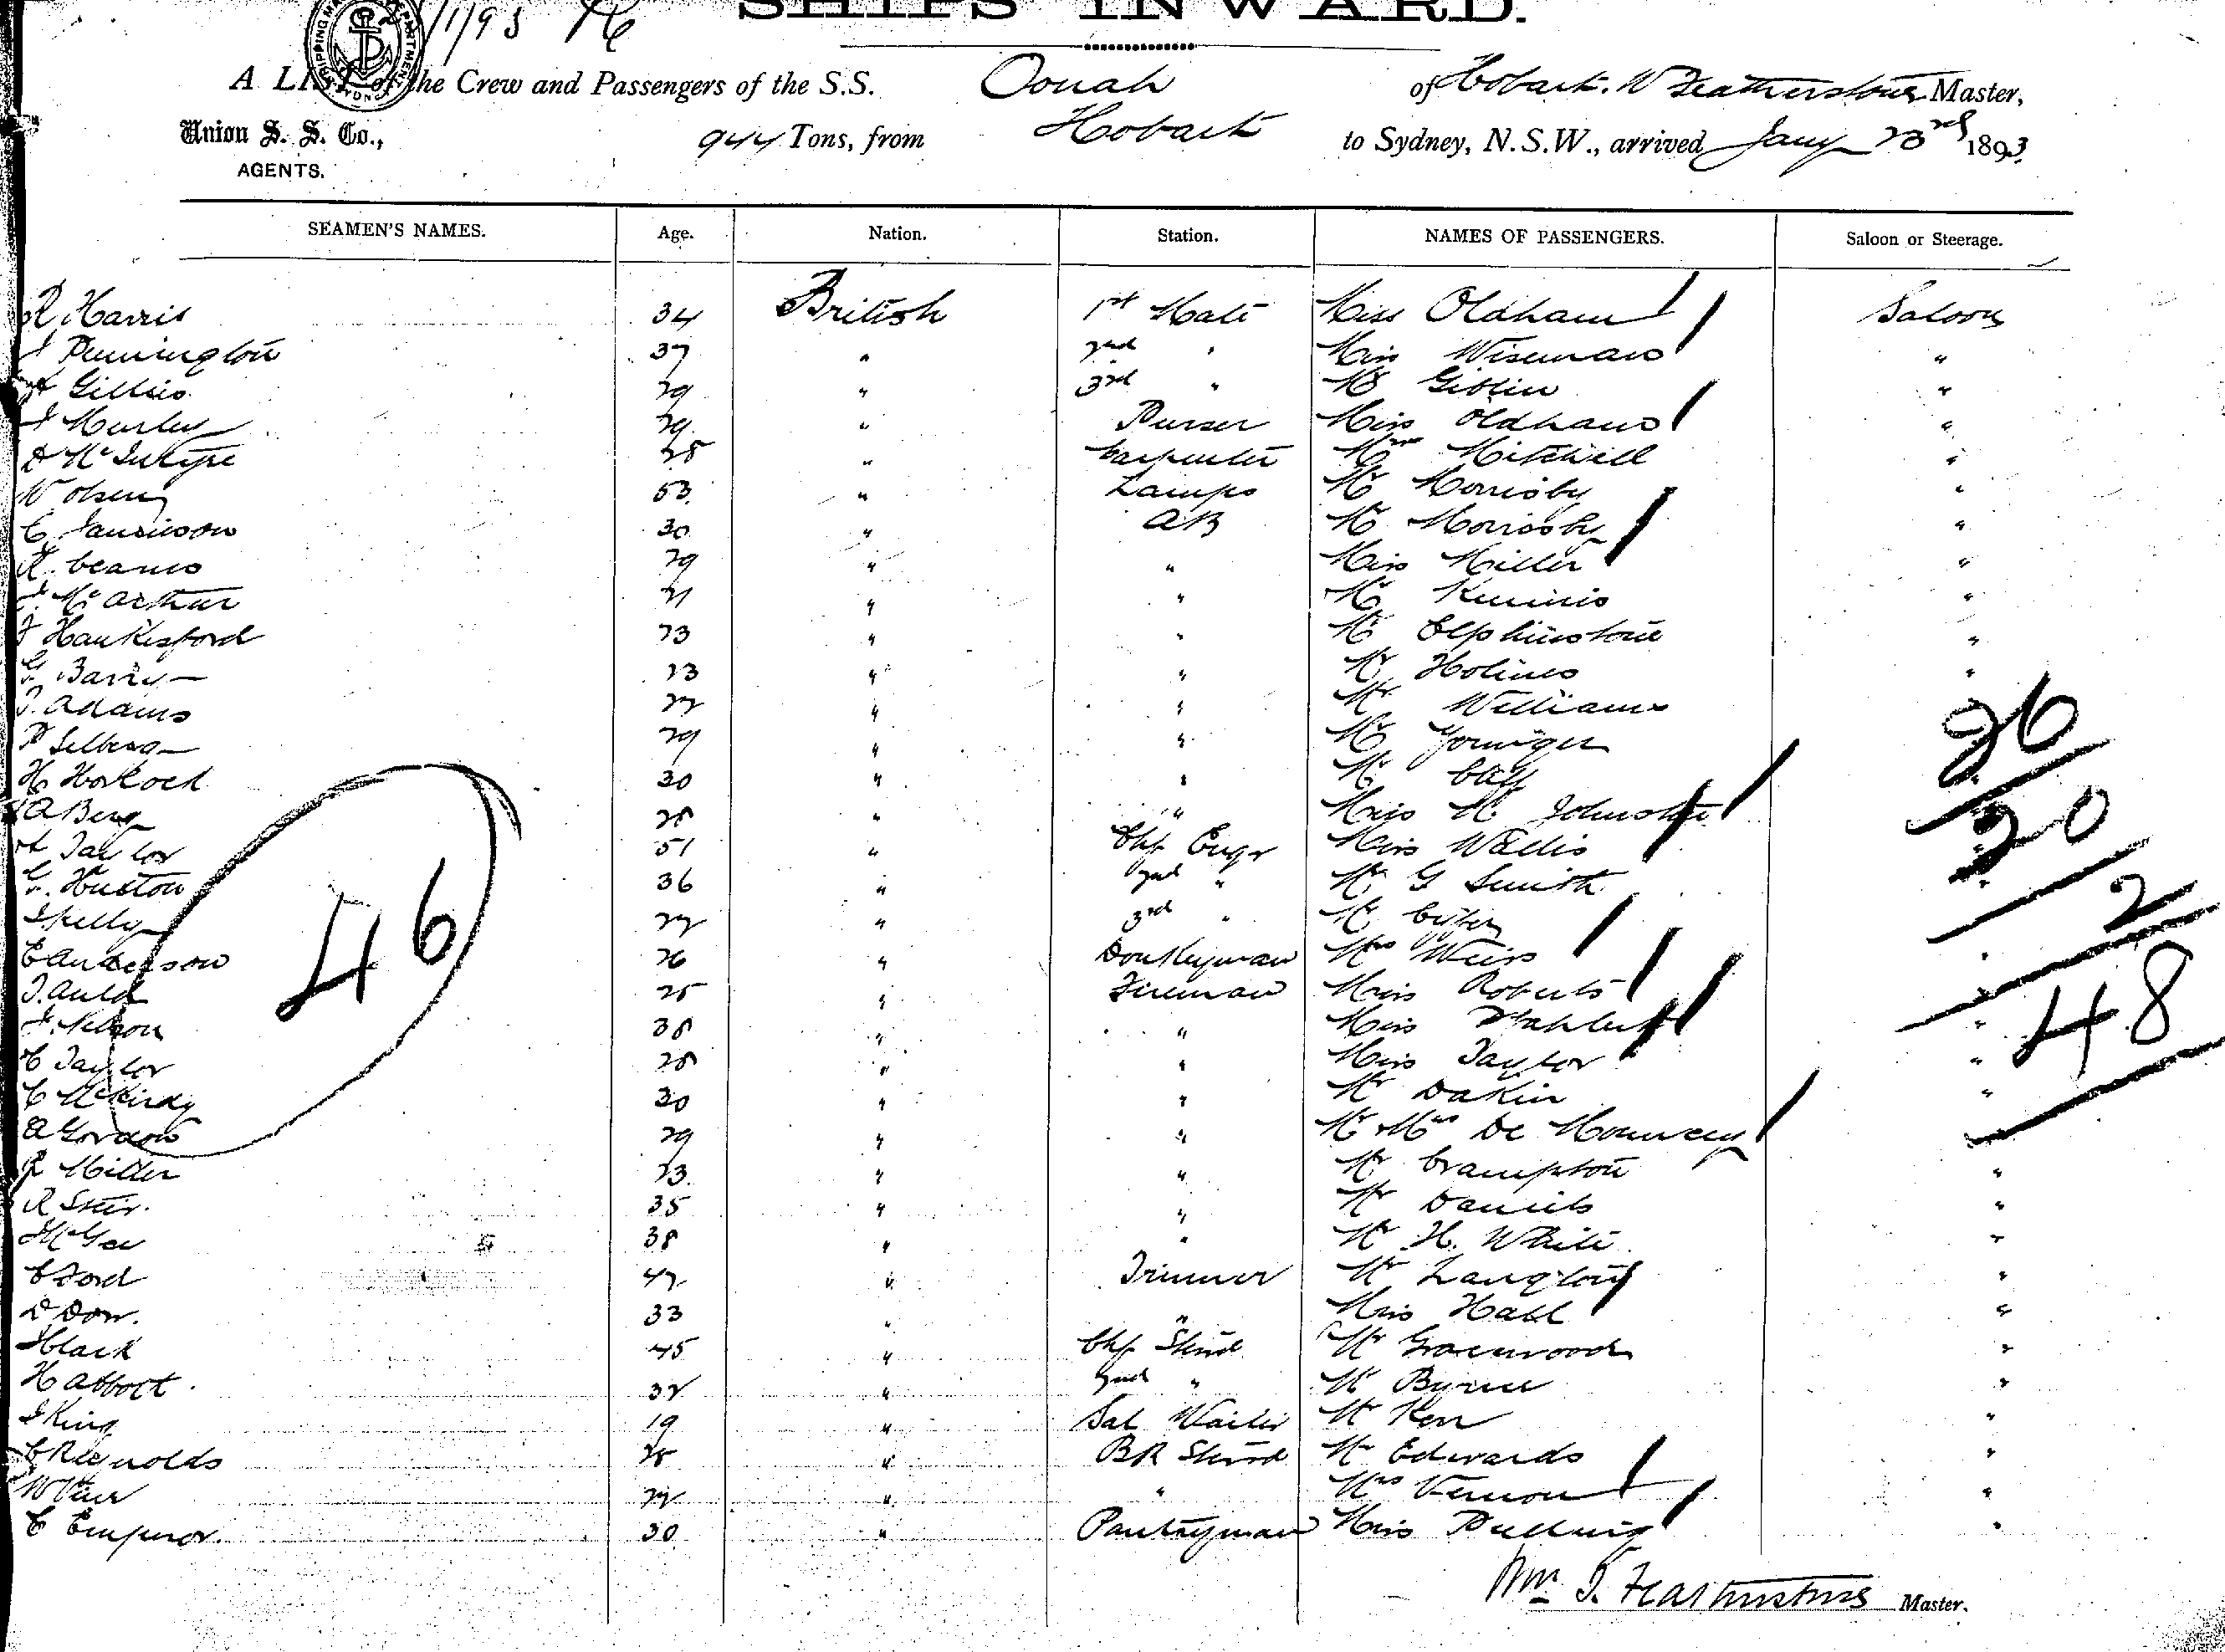 /1/93
SHIPS INWARD.
A LIST of the Crew and Passengers of the S.S. Oonah of Hobart. W Featherstone Master,
Union S. S. Co., 944 Tons, from Hobart to Sydney, N.S.W., arrived Jany 23rd 1893
AGENTS.
SEAMEN'S NAMES. Age. Nation. Station. NAMES OF PASSENGERS. Saloon or Steerage.
R Harris 34 British 1st Mate Miss Oldham Saloon
J Pennington 37 " 2nd " Miss Wiseman "
Gillies 29 " 3rd " Mr Giblin "
29 " Purser Miss Oldham "
D McIntyre " Carpenter Mrs Mitchell "
W Olsen 53 " Lamps Mr Morrisby "
C Jamieson 30 " AB Mr Morrisby "
29 " " Miss Miller "
McArthur 21 " " Mr "
F Hankesford 23 " " Mr Elphinstone "
G. Barry 23 " " Mr Holmes "
Adams 22 " " Mr Williams
29 " " Mr Younger 26
H 30 " " Mr
A Berg 28 " " Miss M. Johnston 20
Taylor 51 " Chf Engr Miss Wallis "
G. Huston 36 " 2nd " Mr G Smith "
Kelly 22 " 3rd " Mr 2
E Anderson 26 " Donkeyman Mrs Weiss
46
J. Auld 25 " Fireman Miss Roberts
J. Nelson 38 " " Miss " 48
Taylor 28 " " Miss Taylor "
C McKirdy 30 " " Mr Dakin "
A Gordon 29 " " Mr Mrs De
Miller 23 " " Mr Crampton "
R 35 " " Mr Daniels "
McGee 38 " " Mr H. White "
C Ford 42 " Trimmer Mr Langton "
D Dow. 33 " " Miss Hall "
Black 45 " Chf Stwd Mr Greenwood "
H Abbott 32 " 2nd " Mr Byrne "
J King 19 " Sal Waiter Mr Kerr "
C Reynolds 28 " BR Stwd Mr Edwards "
W 22 " " Mrs Vernon "
C Emperor 30 " Pantryman Miss Pulling "
Wm. T. Featherstone Master.